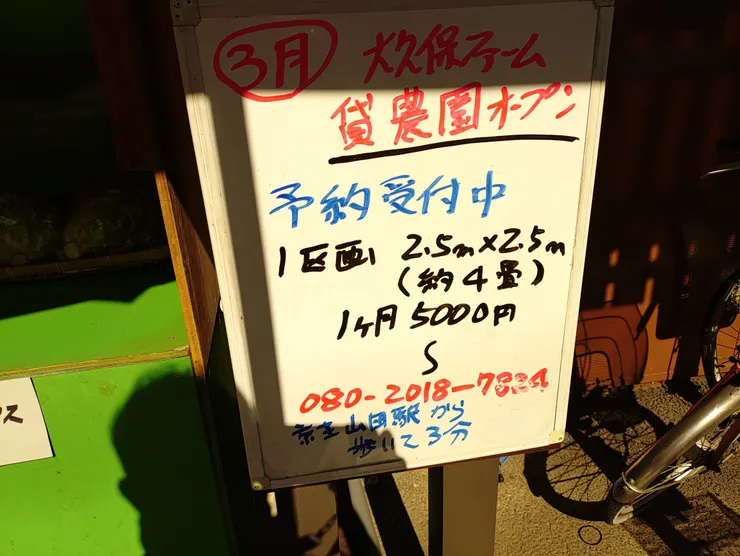 3月 大久保ファーム
貸農園オープン
予約受付中
1区画 2.5m×2.5m
(約4畳)
1ヶ月 5000円
〜
080-2018-7824
京王山田駅から
歩いて3分
ス